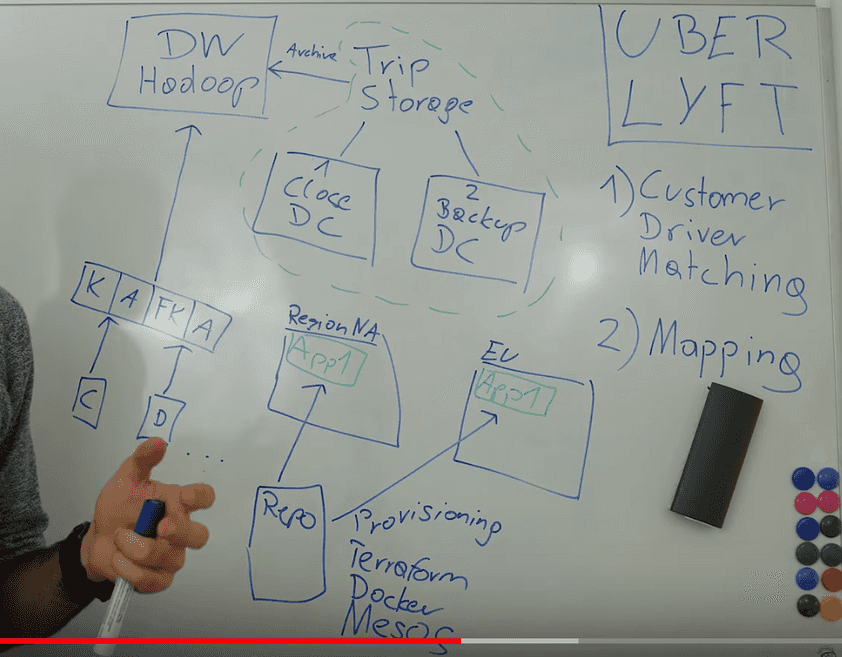 DW
Hadoop
Archive
Trip
Storage
UBER
LYFT
1
Close
DC
2
Backup
DC
1) Customer
Driver
Matching
2) Mapping
K A FK A
C
D
...
Region NA
App1
EU
App1
Repo
Provisioning
Terraform
Docker
Mesos